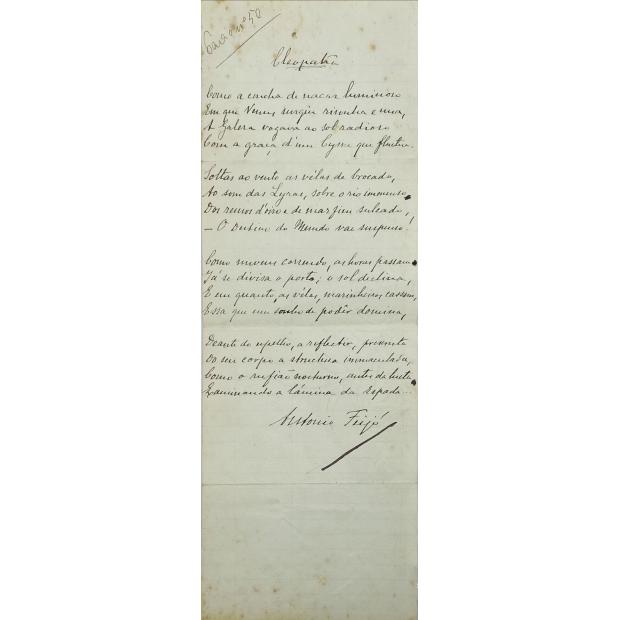 nº 50
Cleopatra
Como a concha de nacar luminoso
Em que Venus surgiu risonha e nua,
A Galera vogava ao sol radioso
Com a graça d'um Cysne que fluctua.
Soltas ao vento as vélas de brocado,
Ao som das Lyras, sobre o rio immenso
Dos remos d'oiro e de marfim sulcado,
— O Destino do Mundo vae suspenso.
Como nuvens correndo, as horas passam
Já se divisa o porto; o sol declina,
E em quanto, as vélas, marinheiros cassam,
Essa que um sonho de podêr domina,
Deante do espelho, a reflectir, prescruta
Do seu corpo a structura immaculada,
Como o rufião nocturno, antes da lucta
Examinando a lámina da Espada...
Antonio Feijó